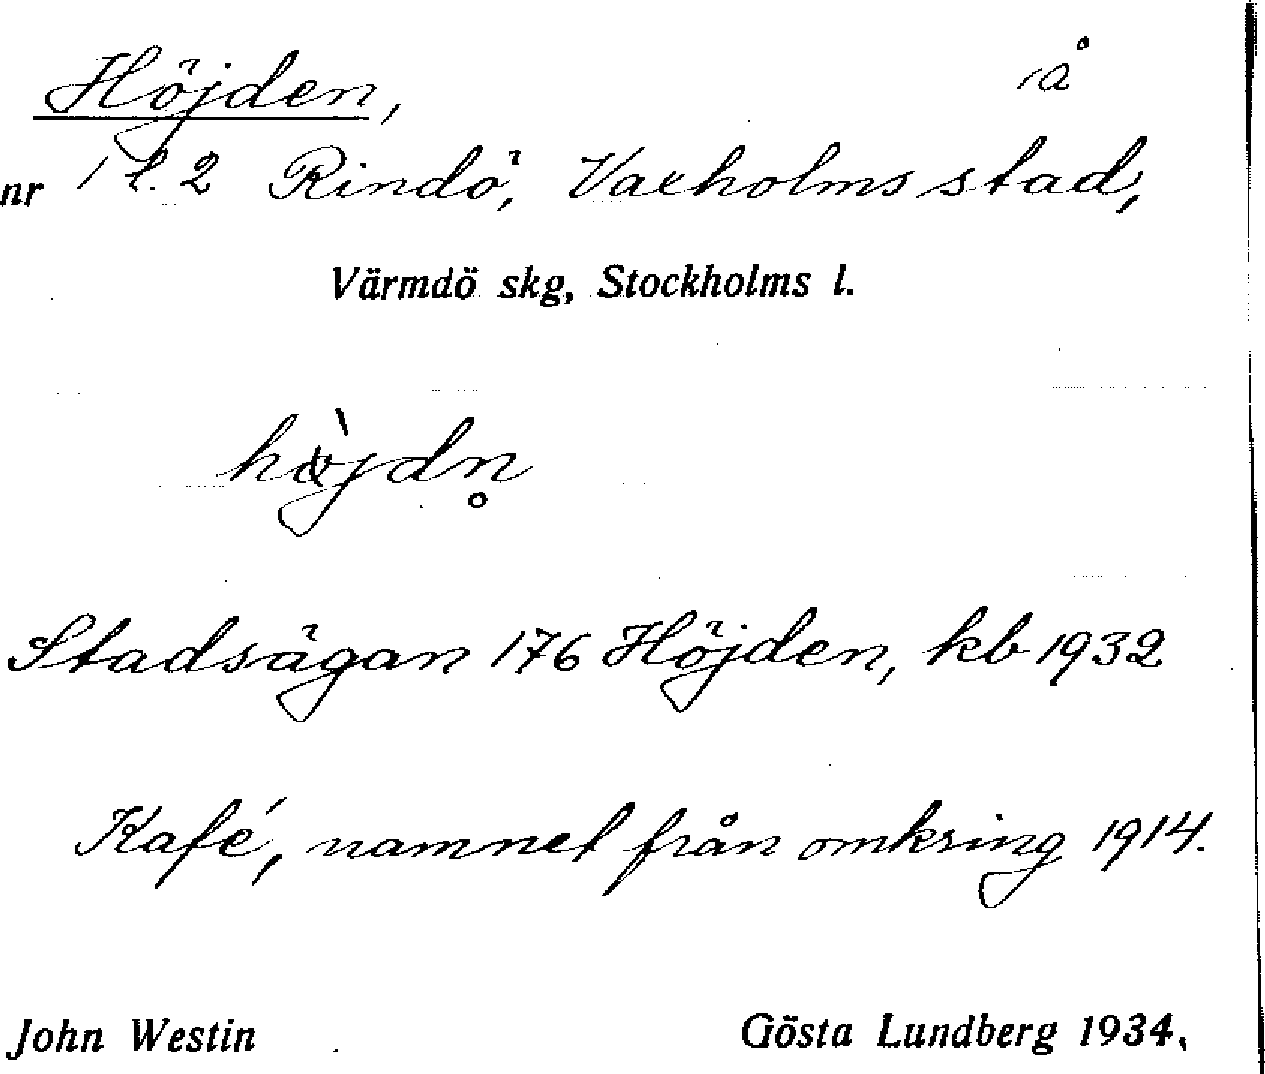 Höjden, på
nr 1 l. 2 Rindö, Vaxholms stad,
Värmdö skg, Stockholms l.
Stadsägan 176 Höjden, kb 1932
Kafé, namnet från omkring 1914.
John Westin Gösta Lundberg 1934.